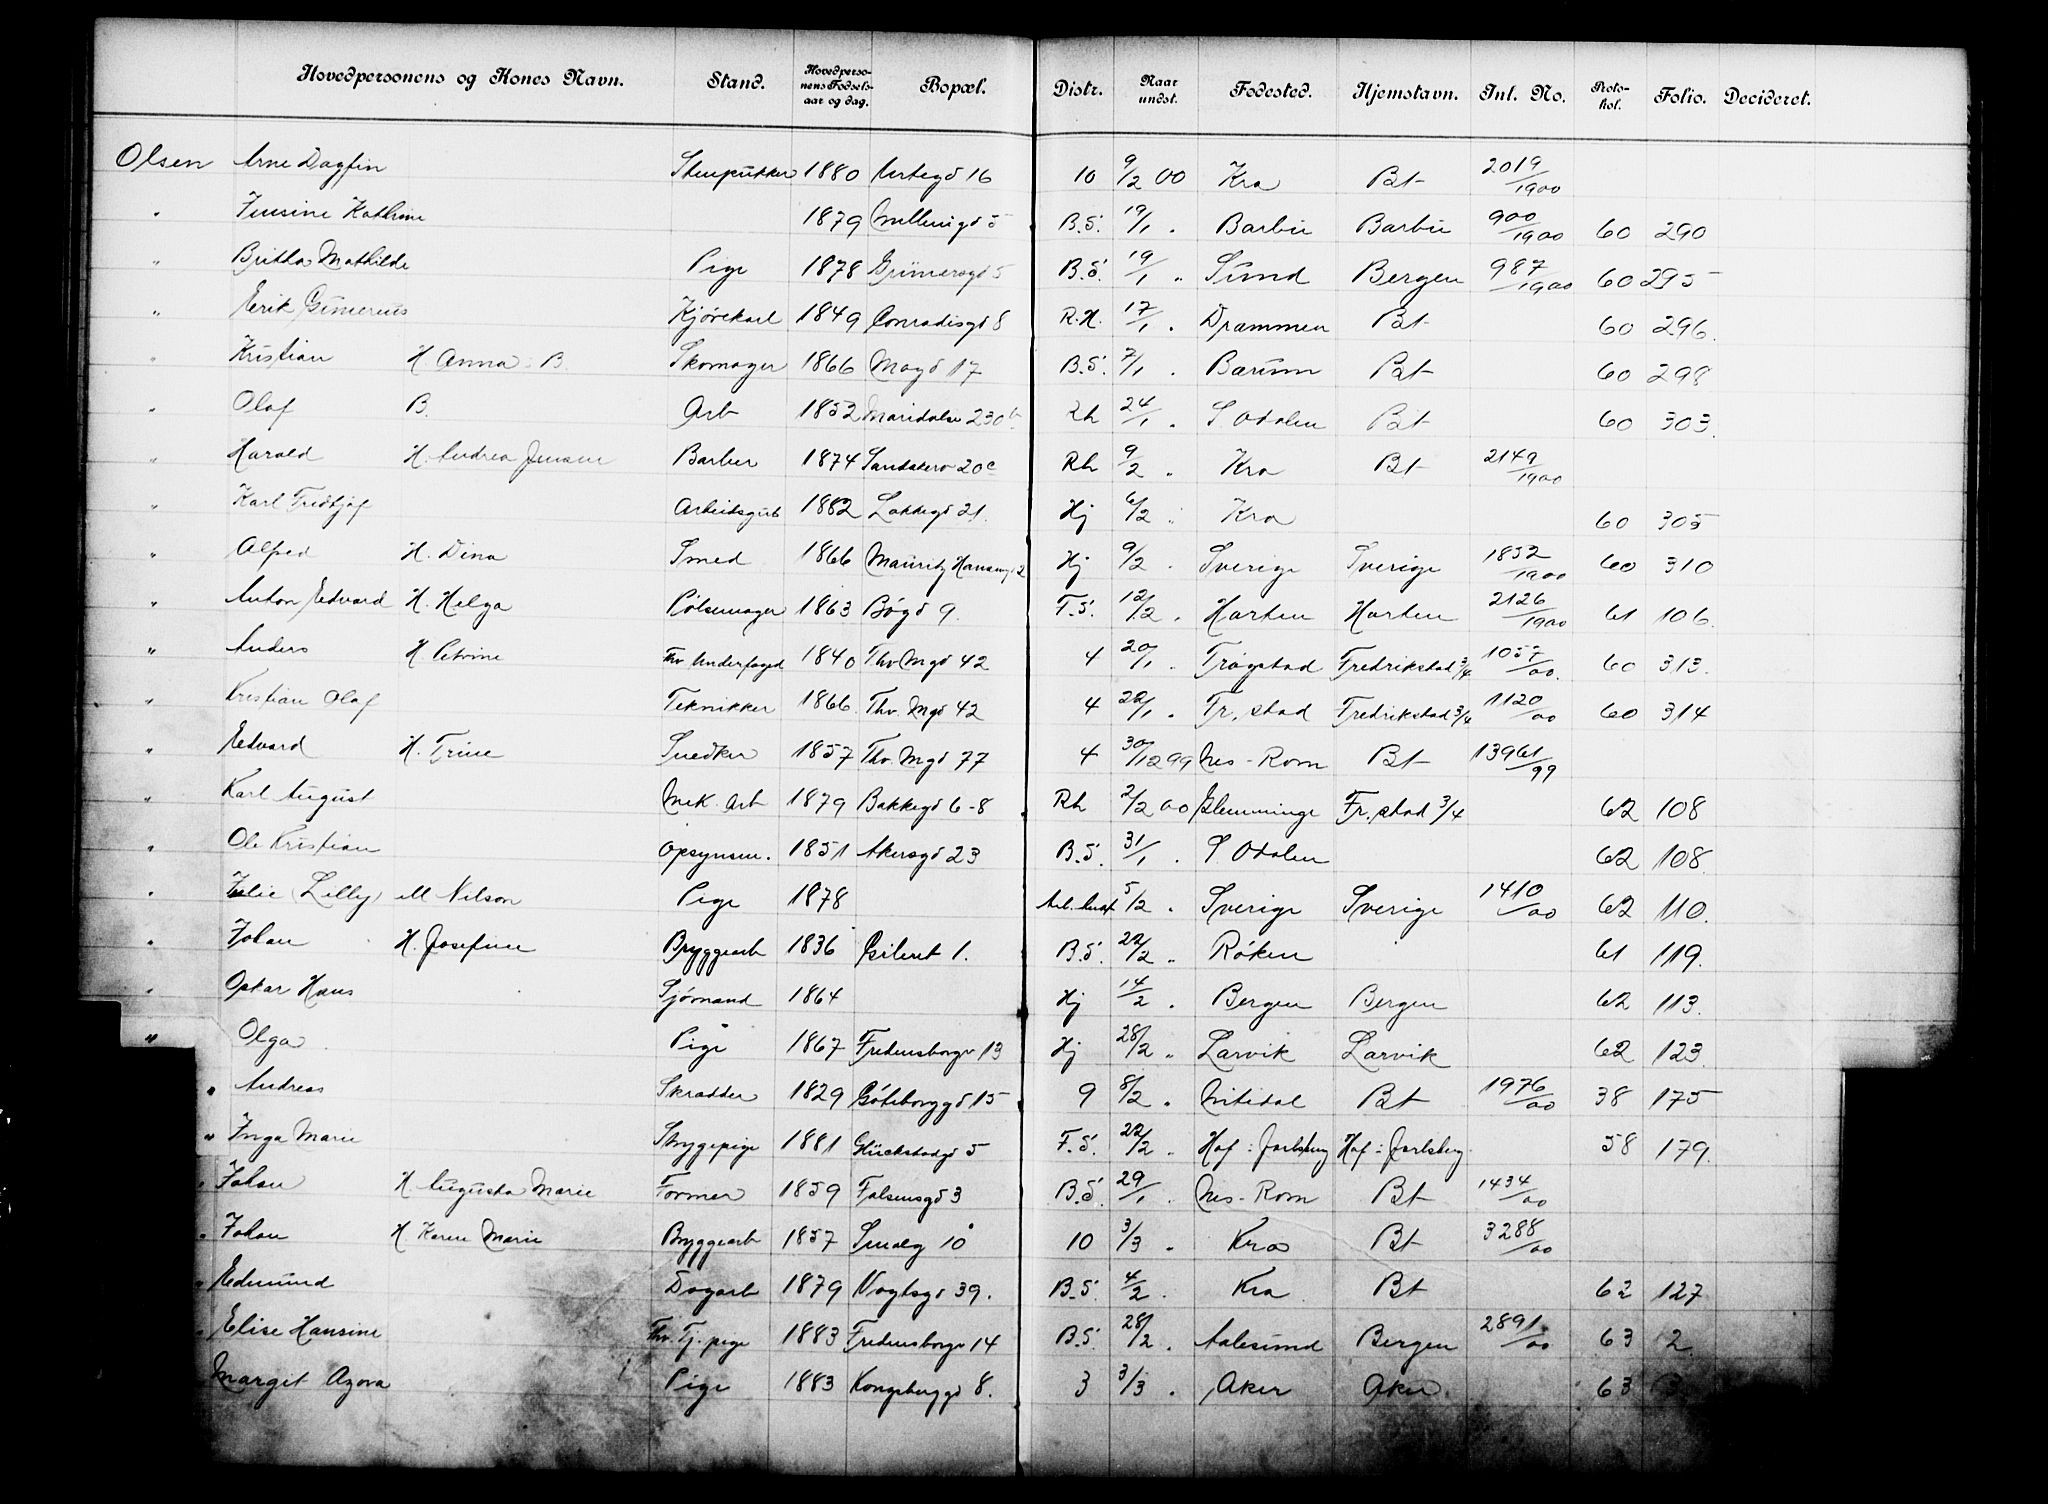 Hovedpersonens og Kones Navn. Stand. Hovedperso- nens Fødsels- aar og dag. Bopæl. Distr. Naar undst. Fødested. Hjemstavn. Int. No. Proto- kol. Folio. Decideret.
Olsen Arne Dagfin 1880 16 10 9/2 00 Kra Bt 2019/1900
" Kathrine 1879 5 B.S. 19/1 " Barbu Barbu 900/1900 60 290
" Britha Mathilde Pige 1878 Grünersgd 5 B.S. 19/1 " Sund Bergen 987/1900 60 295
" Erik Kjørekarl 1849 Conradisgd 8 R.H. 17/1 " Drammen Bt 60 296.
" Kristian H. Anna B. Skomager 1866 Magd 17 B.S. 7/1 " Bærum Bt 60 298
" Olaf B. Arb 1852 Maridalsv 230 b Rh 24/1 " S. Odalen Bt 60 303.
" Harald H. Andrea Jensen Barber 1874 Sandakerv 20c Rh 9/2 " Kra Bt 2149/1900
" Karl Fredtjof Arbeidsgut 1882 Lakkegd 21. Hj 6/2 " Kra 60 305
" Alfred H. Dina Smed 1866 Mauritz Hansensg 2 Hj 9/2 " Sverige Sverige 1852/1900 60 310
" Anton Edvard H. Helga Pølsemager 1863 Bøgd 9. F.S. 12/2 " Horten Horten 2126/1900 61 106.
" Anders H. Petrine Fhv Underfoged 1840 Thv Mgd 42 4 20/1 " Trøgstad Fredrikstad 3/4 1057/00. 60 313.
" Kristian Olaf Teknikker 1866. Thv. Mgd 42 4 22/1 " Fr.stad Fredrikstad 3/4 1120/00 60 314
" Edvard H. Trine Snedker 1857 Thv. Mgd 77 4 30/12 99 Nes - Rom Bt 13961/99
" Karl August Mek. Arb 1879 Bakkegd 6-8 Rh 2/2 00 Glemminge Fr.stad 3/4 62 108
" Ole Kristian Opsynsm. 1851 Akersgd 23 B.S. 31/1 " S Odalen 62 108.
" Julie (Lilly) M Nilson Pige 1878 5/2 " Sverige Sverige 1410/00 62 110.
" Johan H. Josefine Bryggearb 1836 1. B.S. 22/2 " Røken 61 119.
" Oskar Hans Sjømand 1864 Hj 14/2 " Bergen Bergen 62 113.
" Olga Pige 1867 Fredensborgv 13 Hj 28/2 " Larvik Larvik 62 123
" Andreas Skrædder 1829 Göteborggd 15 9 8/2 " Nitedal Bt 1976/00 38 175
" Inga Marie Strygepige 1881 Glückstadgd 5 F.S. 22/2 " Hof i Jarlsberg Hof i Jarlsberg 58 179.
" Johan H. Augusta Marie Former 1859 Falsensgd 3 B.S. 29/1 " Nes - Rom Bt 1434/00
" Johan H Karen Marie Bryggearb 1857 Smalg 10 10 3/3 " Kra Bt 3288/00
" Edmund Dagarb 1879 Vogtsgd 39. B.S. 4/2 " Kra Bt 62 127
" Elise Hansine Fhv. Tj. pige 1883 Fredensborgv 14 B.S. 28/2 " Aalesund Bergen 2891/00 63 2.
Margit Agora Pige 1883 Kongsberggd 8. 3 3/3 " Aker Aker 63